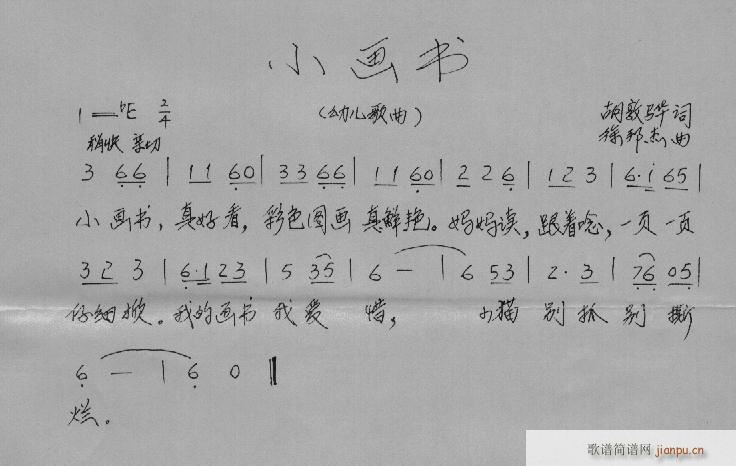 小画书
1=♭E 2/4 (幼儿歌曲) 胡敦骅词
稍快 亲切 徐邦杰曲
3 66 | 11 60 | 33 66 | 11 60 | 2 2 6 | 12 3 | 6·i 65 |
小画书，真好看，彩色图画真鲜艳。妈妈读，跟着念，一页一页
32 3 | 6·1 23 | 5 35 | 6 — | 6 53 | 2·3 | 76 05 |
仔细掀。我的画书我爱惜，小猫别抓别撕
6 — | 6 0 ‖
烂。
歌谱简谱网 jianpu.cn